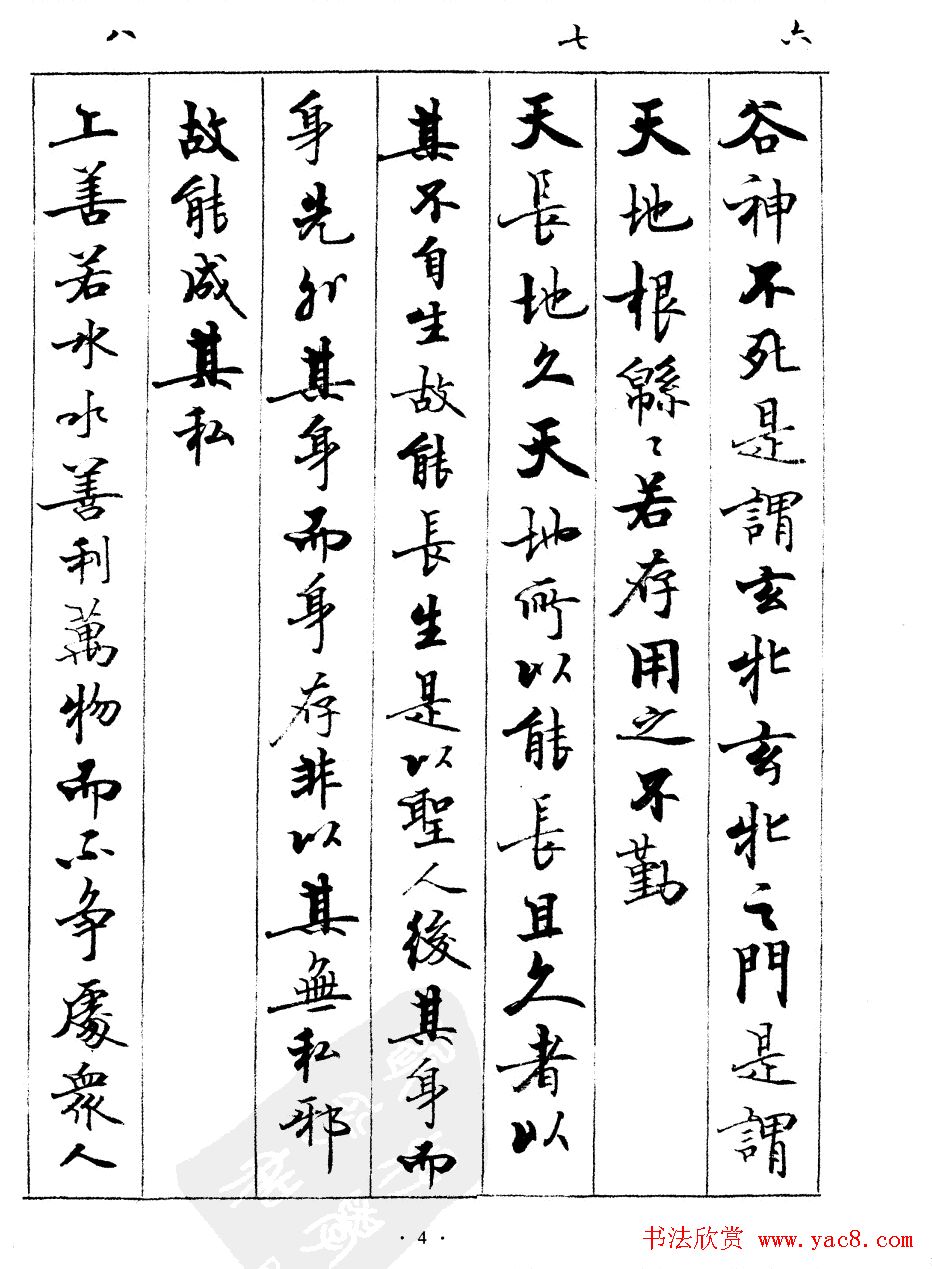 六
谷神不死是謂玄牝玄牝之門是謂
天地根緜〻若存用之不勤
七
天長地久天地所以能長且久者以
其不自生故能長生是以聖人後其身而
身先外其身而身存非以其無私邪
故能成其私
八
上善若水水善利萬物而不争處衆人
·4·
书法欣赏 www.yac8.com